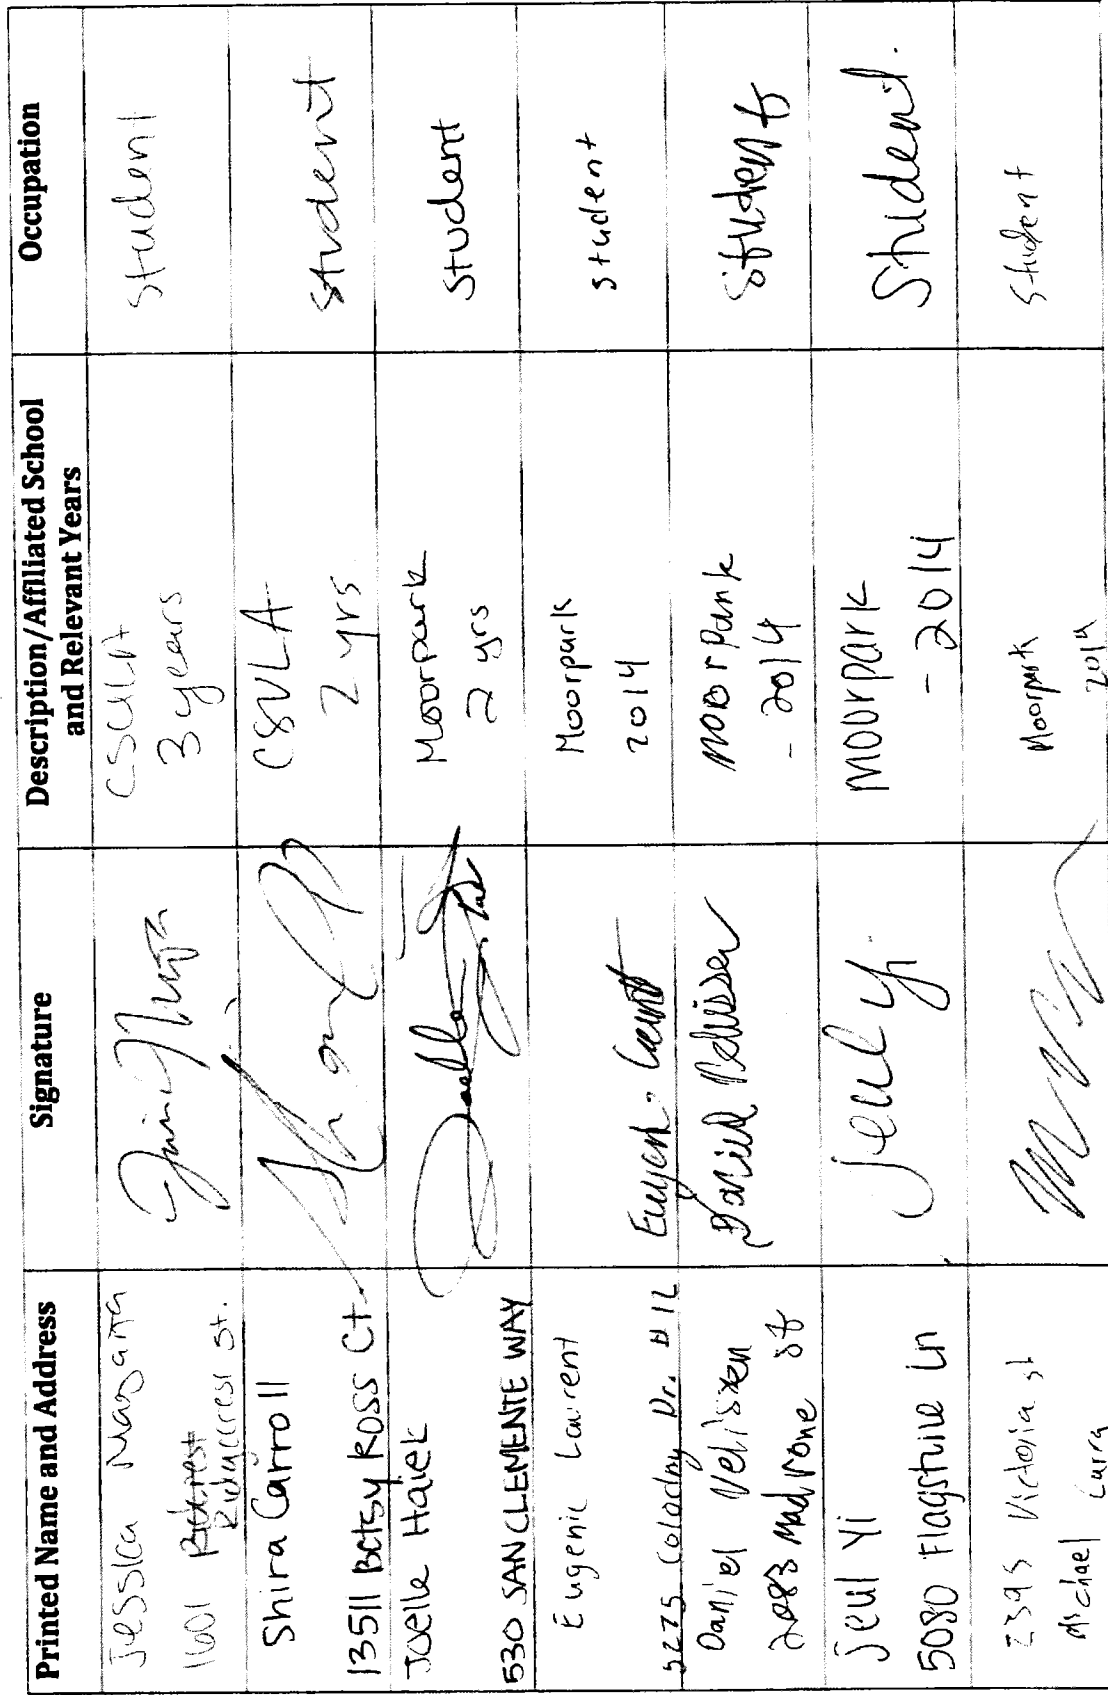 Printed Name and Address
Signature
Description/Affiliated School
and Relevant Years
Occupation
Jessica Magana
1601
Ridgecrest St.
CSULA
3 years
Student
Shira Carroll
13511 Betsy Ross Ct
CSULA
2 yrs
Student
Joelle Haiek
530 SAN CLEMENTE WAY
Moorpark
2 yrs
Student
Eugenie Laurent
5275 Colodny Dr. #12
Moorpark
2014
student
Daniel Velissen
2083 Madrone st
Daniel
moorpark
- 2014
student
Jeul Yi
5080 Flagstone Ln
Jeul Yi
moorpark
- 2014
Student.
2395 Victoria st
Michael
Moorpark
2014
Student